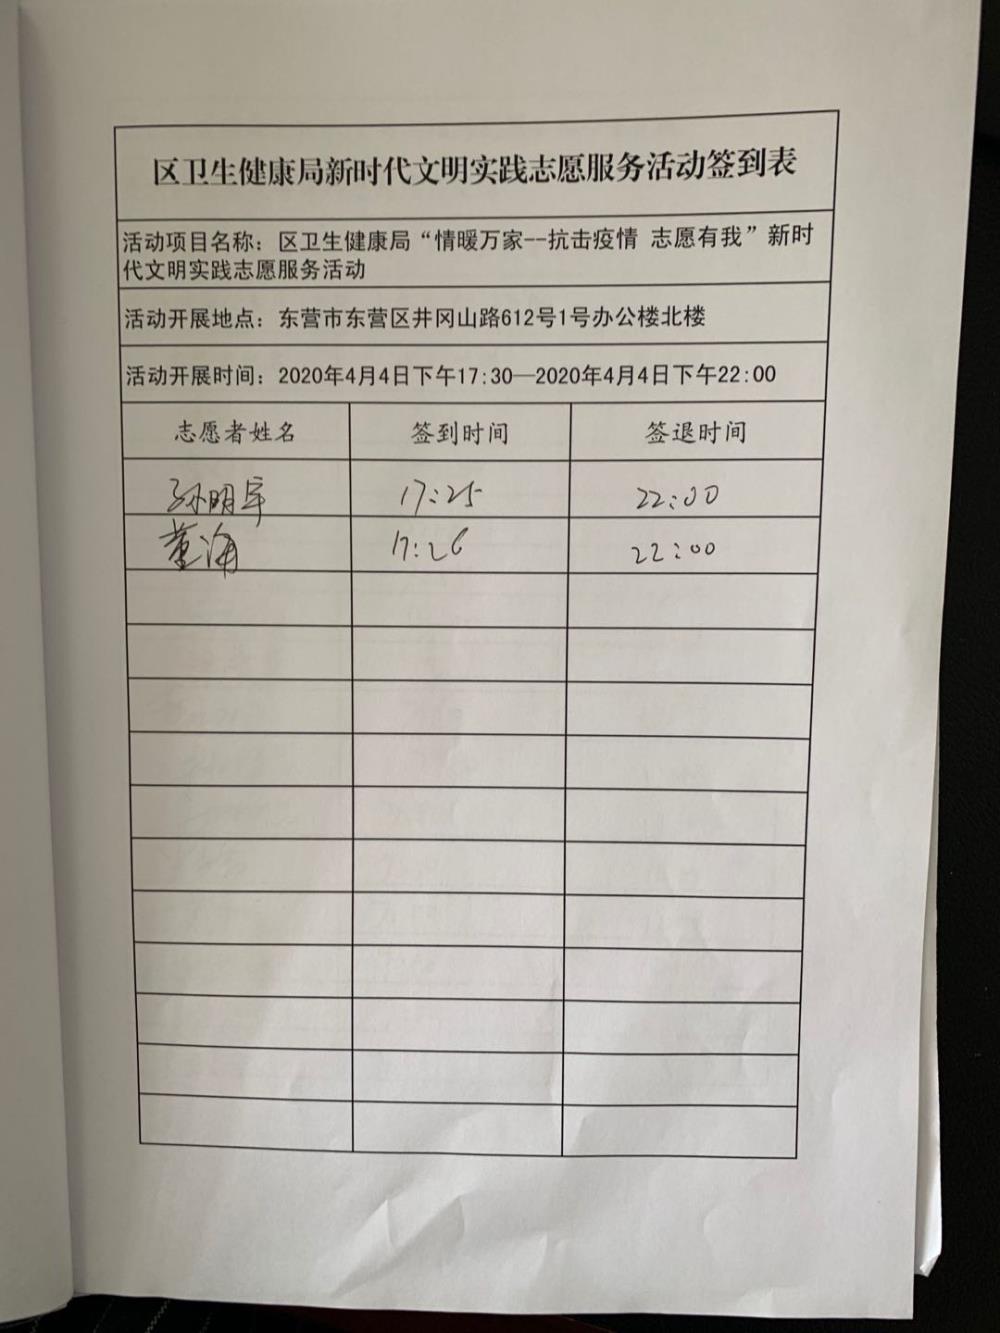 区卫生健康局新时代文明实践志愿服务活动签到表
活动项目名称：区卫生健康局“情暖万家--抗击疫情 志愿有我”新时
代文明实践志愿服务活动
活动开展地点：东营市东营区井冈山路612号1号办公楼北楼
活动开展时间：2020年4月4日下午17:30—2020年4月4日下午22:00
志愿者姓名 签到时间 签退时间
孙明军 17:25 22:00
董海 17:26 22:00